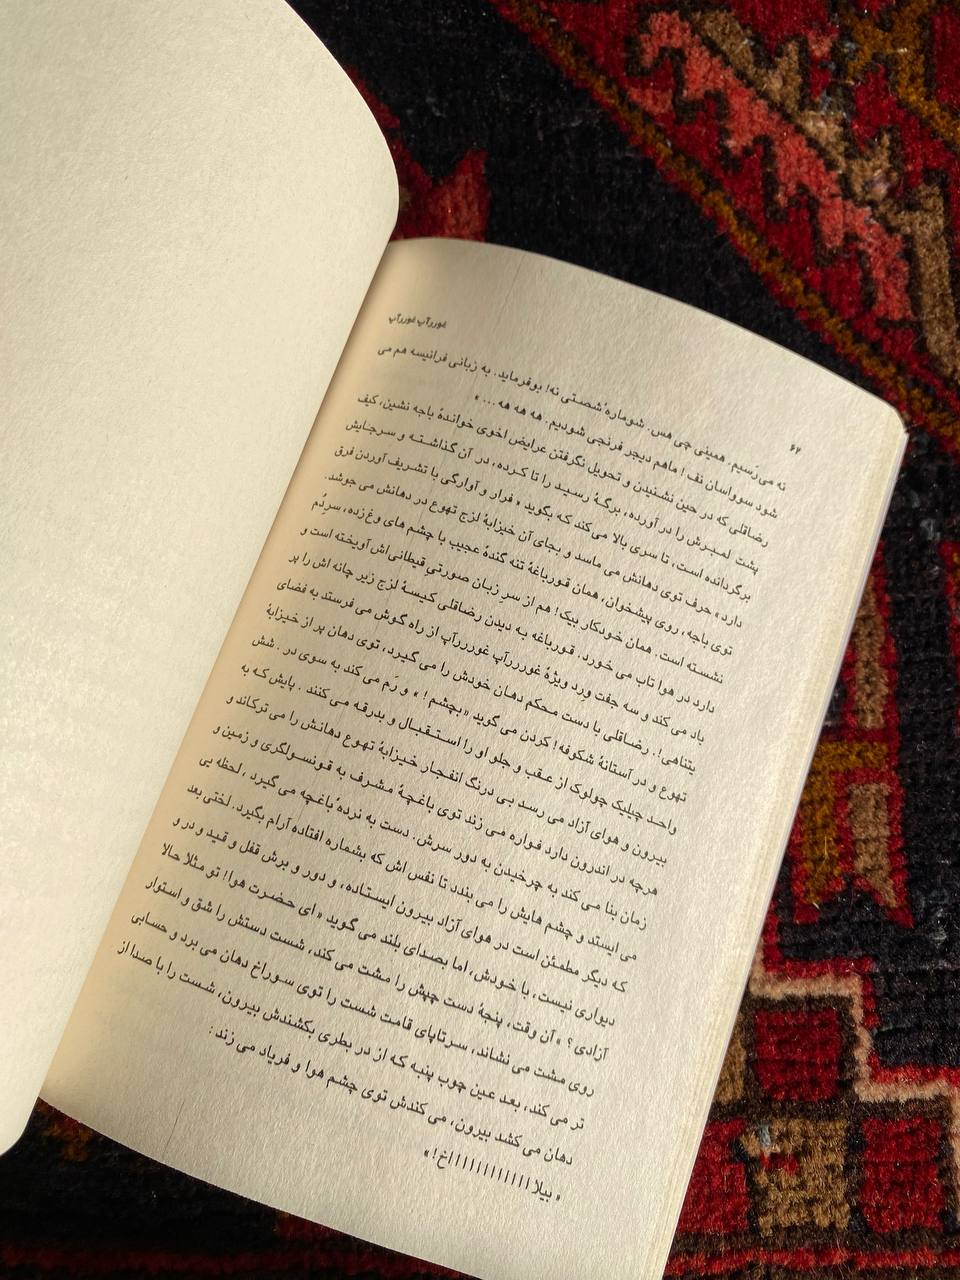 غوررآپ غوررآپ
۶۲
نه می رَسیم. همینی چی هس. شوماره‌ٔ شصتی نه! بوفرماید. به زبانی فرانیسه هم می
شود سوواسان نف! ماهم دیجر فرنجی شودیم. هه هه هه ... »
رضاقلی که در حین نشنیدن و تحویل نگرفتن عرایض اخوی خواندهٔ باجه نشین، کیف
پشت لمبرش را در آورده، برگهٔ رسید را تا کرده، در آن گذاشته و سرجایش
برگردانده است، تا سری بالا می کند که بگوید « فرار و آوارگی با تشریف آوردن فرق
دارد» حرف توی دهانش می ماسد و بجای آن خیزابهٔ لزج تهوع در دهانش می جوشد.
توی باجه، روی پیشخوان، همان قورباغهٔ تنه گندهٔ عجیب با چشم های وغ زده، سردُم
نشسته است. همان خودکار بیک! هم از سرِ زبان صورتیِ قیطانی‌اش آویخته است و
دارد در هوا تاب می خورد. قورباغه به دیدن رضاقلی کیسهٔ لزج زیر چانه اش را پر
باد می کند و سه جفت وِرد ویژهٔ غوررررآپ غوررررآپ از راه گوش می فرستد به فضای
یتناهی!. رضاقلی با دست محکم دهان خودش را می گیرد، توی دهان پر از خیزابهٔ
تهوع و در آستانهٔ شکوفه! کردن می گوید «بچشم!» و رَم می کند به سوی در. شش
واحد چیلیک چولوک از عقب و جلو او را استقبال و بدرقه می کنند . پایش که به
بیرون و هوای آزاد می رسد بی درنگ انفجار خیزابهٔ تهوع دهانش را می ترکاند و
هرچه در اندرون دارد فواره می زند توی باغچهٔ مشرف به قونسولگری و زمین و
زمان بنا می کند به چرخیدن به دور سرش. دست به نردهٔ باغچه می گیرد ، لحظه یی
می ایستد و چشم هایش را می بندد تا نفس اش که بشماره افتاده آرام بگیرد. لختی بعد
که دیگر مطمئن است در هوای آزاد بیرون ایستاده، و دور و برش قفل و قید و در و
دیواری نیست، با خودش، اما بصدای بلند می گوید « ای حضرت هوا! تو مثلا حالا
آزادی؟ » آن وقت، پنجهٔ دست چپش را مشت می کند، شست دستش را شق و استوار
روی مشت می نشاند، سرتاپای قامت شست را توی سوراخ دهان می برد و حسابی
تر می کند، بعد عین چوب پنبه که از در بطری بکشندش بیرون، شست را با صدا از
دهان می کشد بیرون، می کندش توی چشم هوا و فریاد می زند :
« بیلا ااااااااااااااخ!»